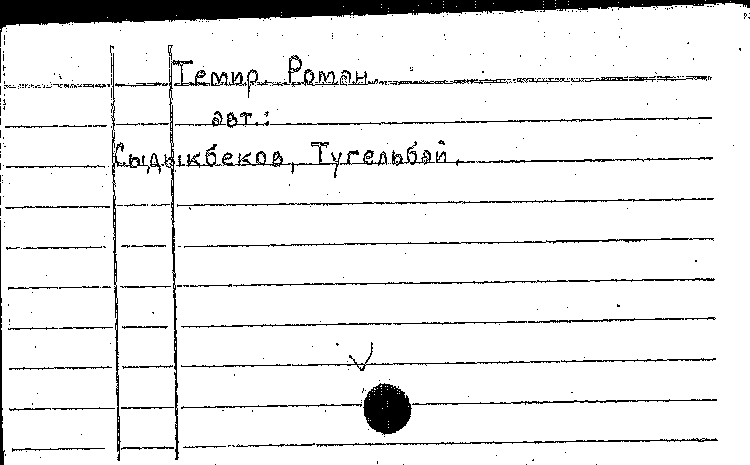 Темир. Роман.
авт.:
Сыдыкбеков, Тугельбай.